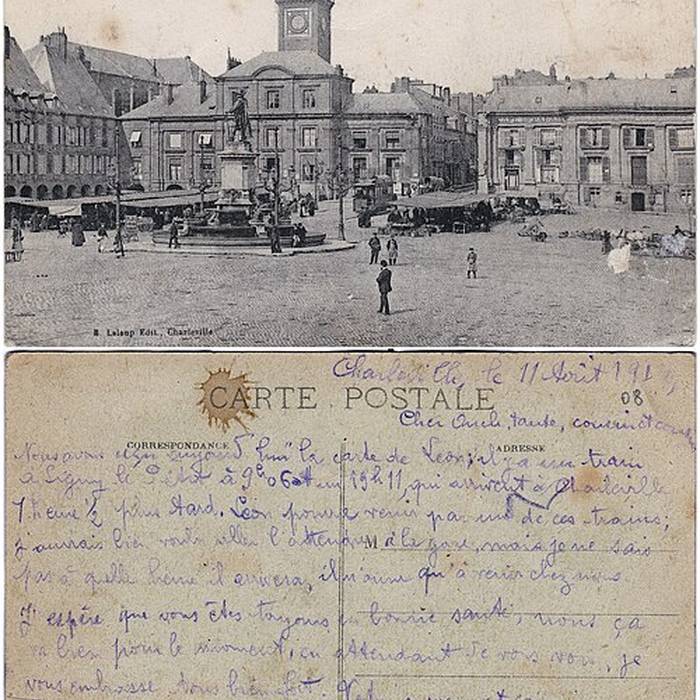 B. Leloup Edit., Charleville
Charleville, le 11 Août 191
CARTE POSTALE
08
Cher Oncle, tante, cousin et
CORRESPONDANCE
ADRESSE
Nous avons reçu aujourd'hui la carte de Léon; il y a un train
à Signy le Petit à 9h 06 et un 19h11, qui arrivent à Charleville
1 heure ½ plus tard. Léon pourra venir par un de ces trains;
j'aurais bien voulu aller l'attendre à la gare, mais je ne sais
M
pas à quelle heure il arrivera, il n'aura qu'à venir chez nous.
J'espère que vous êtes toujours en bonne santé, nous ça
va bien pour le moment, en attendant de vous voir, je
vous embrasse tous bien fort.